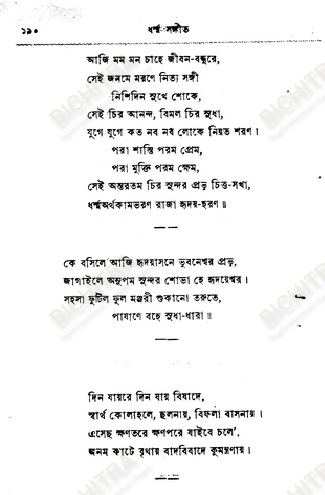 ১৯০
ধর্ম্ম-সঙ্গীত
আজি মম মন চাহে জীবন-বন্ধুরে,
সেই জনমে মরণে নিত্য সঙ্গী
নিশিদিন সুখে শোকে,
সেই চির আনন্দ, বিমল চির সুধা,
যুগে যুগে কত নব নব লোকে নিয়ত শরণ।
পরা শান্তি পরম প্রেম,
পরা মুক্তি পরম ক্ষেম,
সেই অন্তরতম চির সুন্দর প্রভু চিত্ত-সখা,
ধর্ম্মঅর্থকামভরণ রাজা হৃদয়-হরণ॥
কে বসিলে আজি হৃদয়াসনে ভুবনেশ্বর প্রভু,
জাগাইলে অনুপম সুন্দর শোভা হে হৃদয়েশ্বর।
সহসা ফুটিল ফুল মঞ্জরী শুকানো তরুতে,
পাষাণে বহে সুধা-ধারা॥
দিন যায়রে দিন যায় বিষাদে,
স্বার্থ কোলাহলে, ছলনায়, বিফলা বাসনায়।
এসেছ ক্ষণতরে ক্ষণপরে যাইবে চলে',
জনম কাটে বৃথায় বাদবিবাদে কুমন্ত্রণায়।
BICHITRA